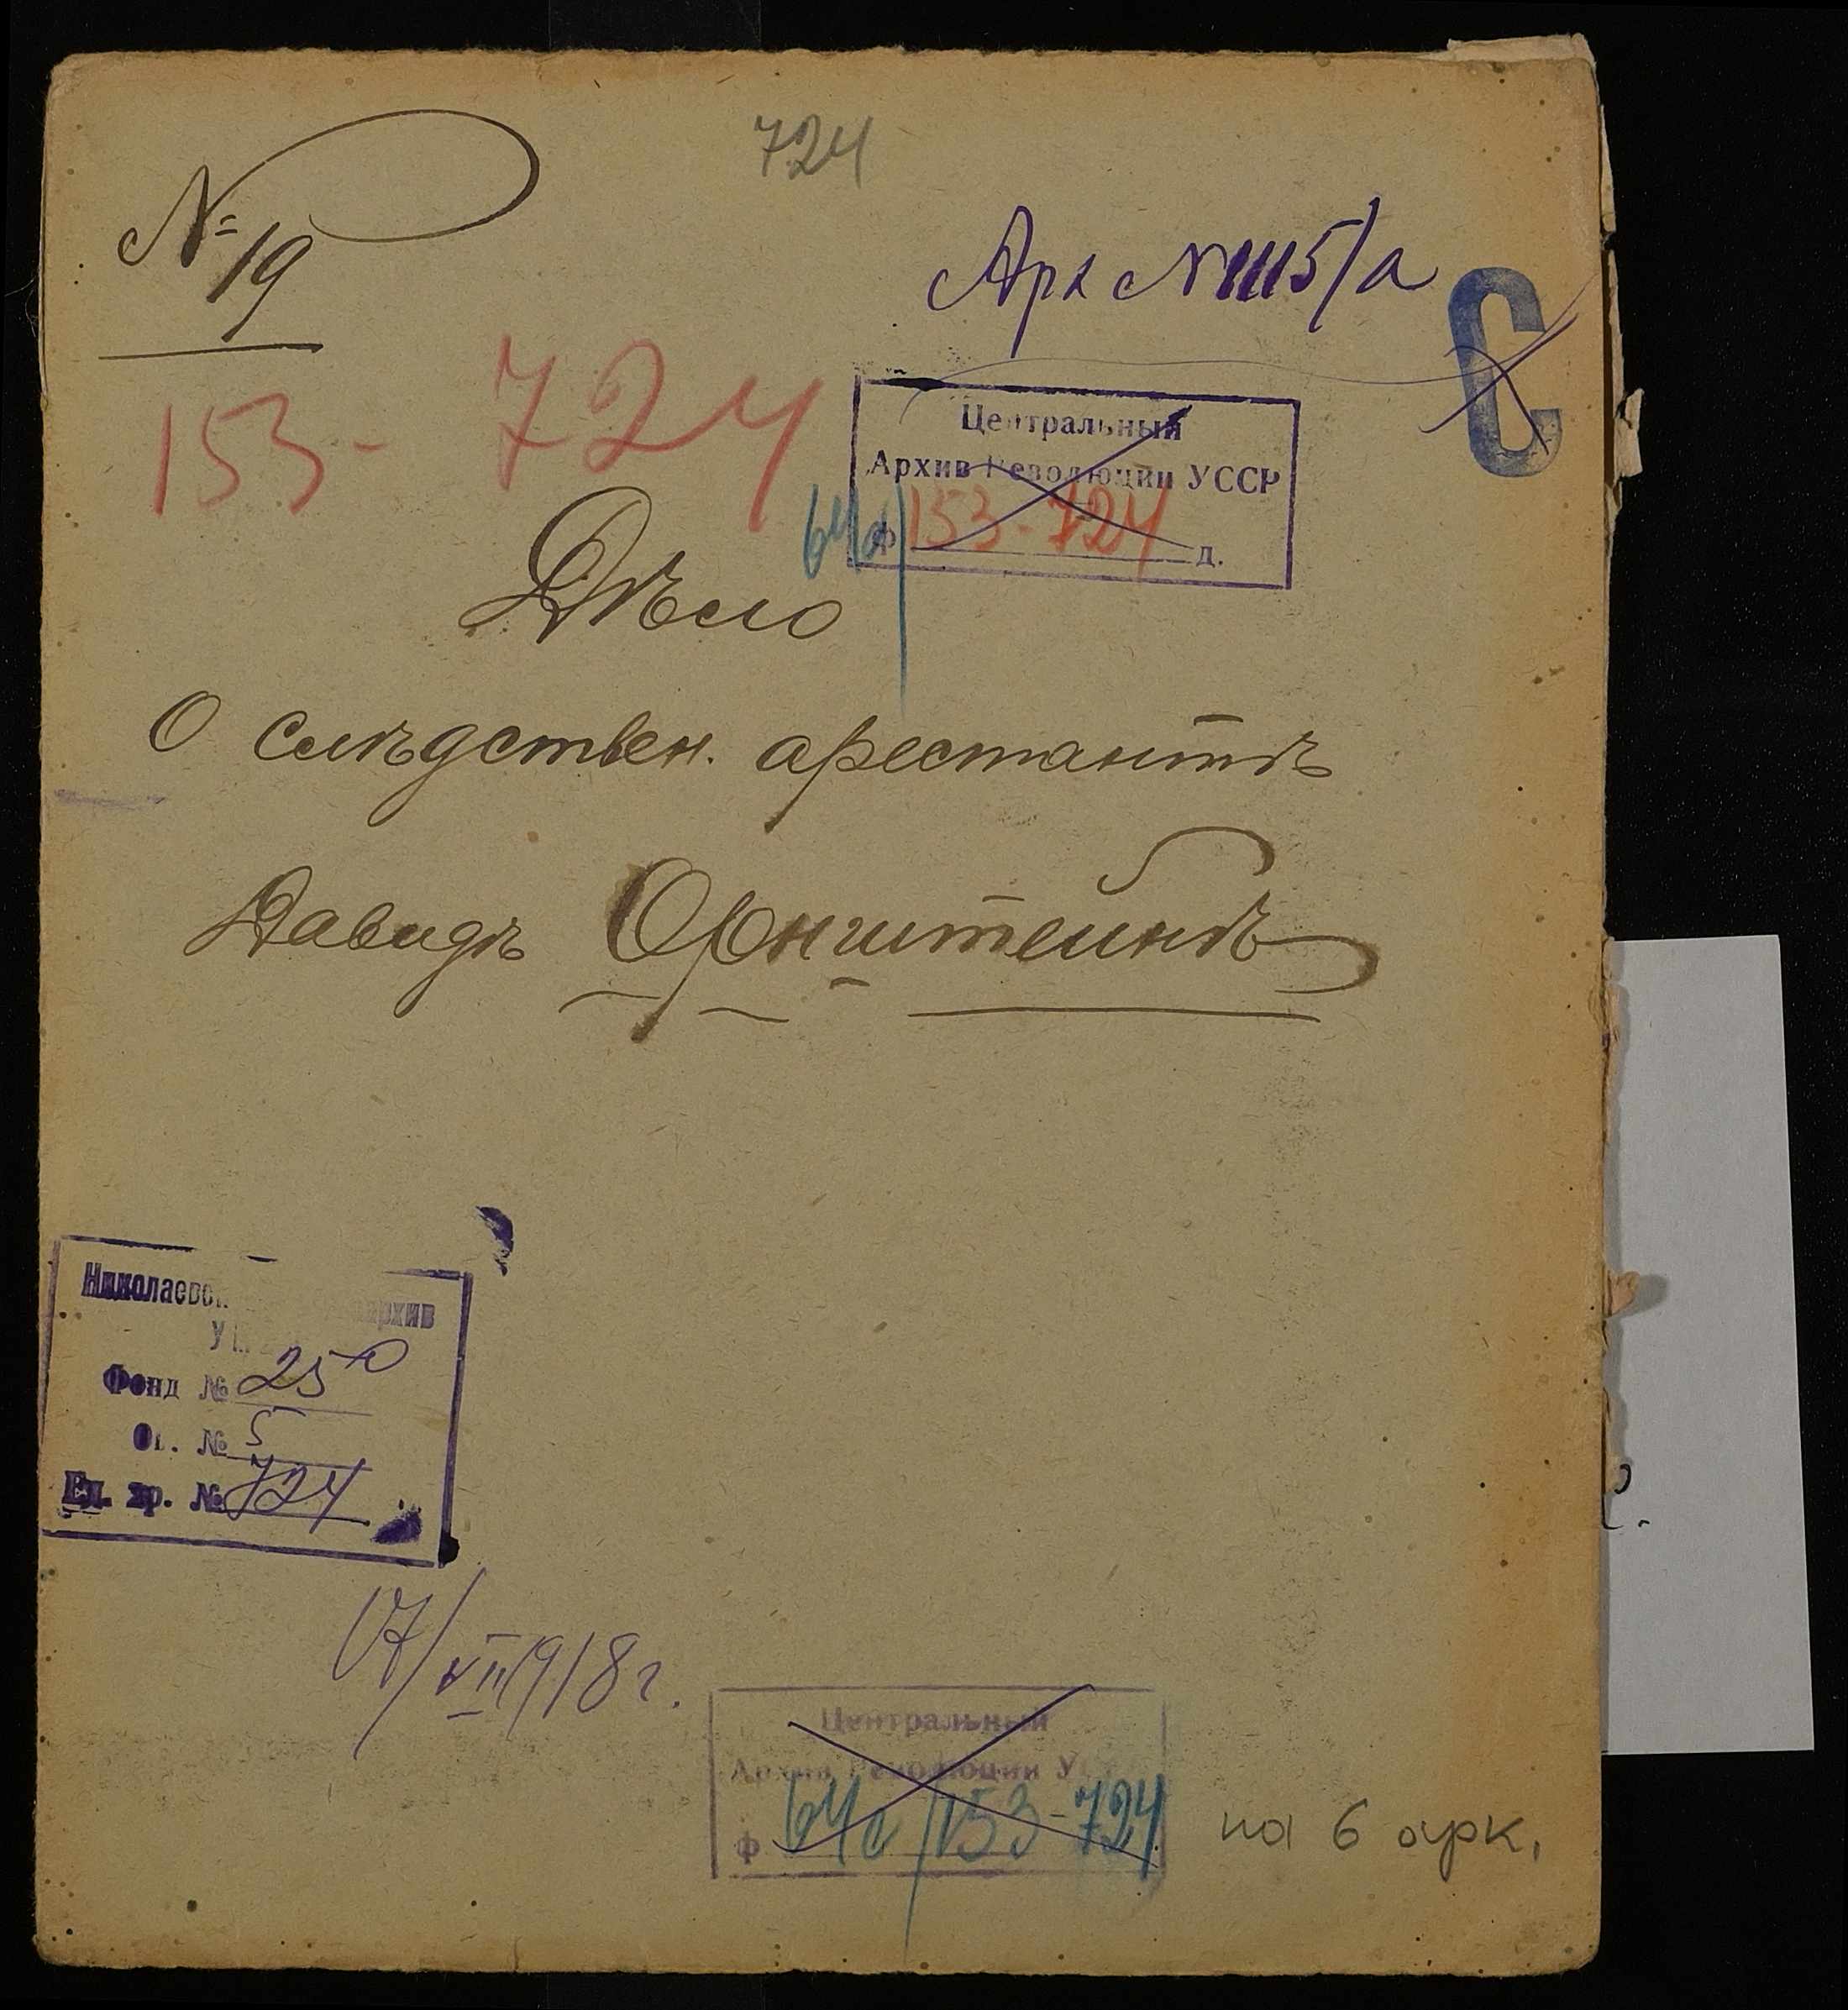 724
№ 19
Арх № 1115/а
С
153 - 724
Центральный
Архив Революции УССР
ф 153-724 д.
Дѣло
О слѣдствен. арестантѣ
Давидъ Орнштейнъ
Николаевск архив
Фонд № 250
Оп. № 5
Ед. хр. № 724
17/VII 1918 г.
Центральный
Архив Революции У
ф 64с/153-724
на 6 арк,